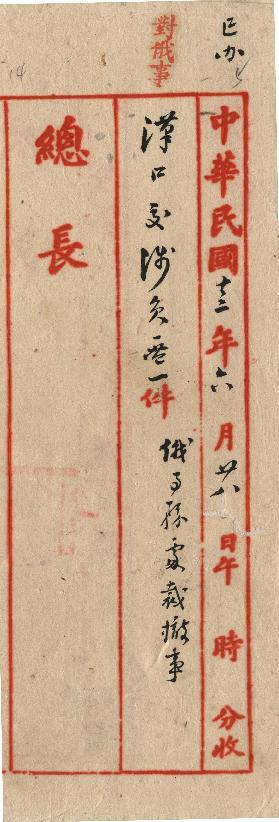 已办
對俄事
14
中華民國十二年六月廿八日午 時 分收
漢口交涉員一件
俄事處裁撤事
總長